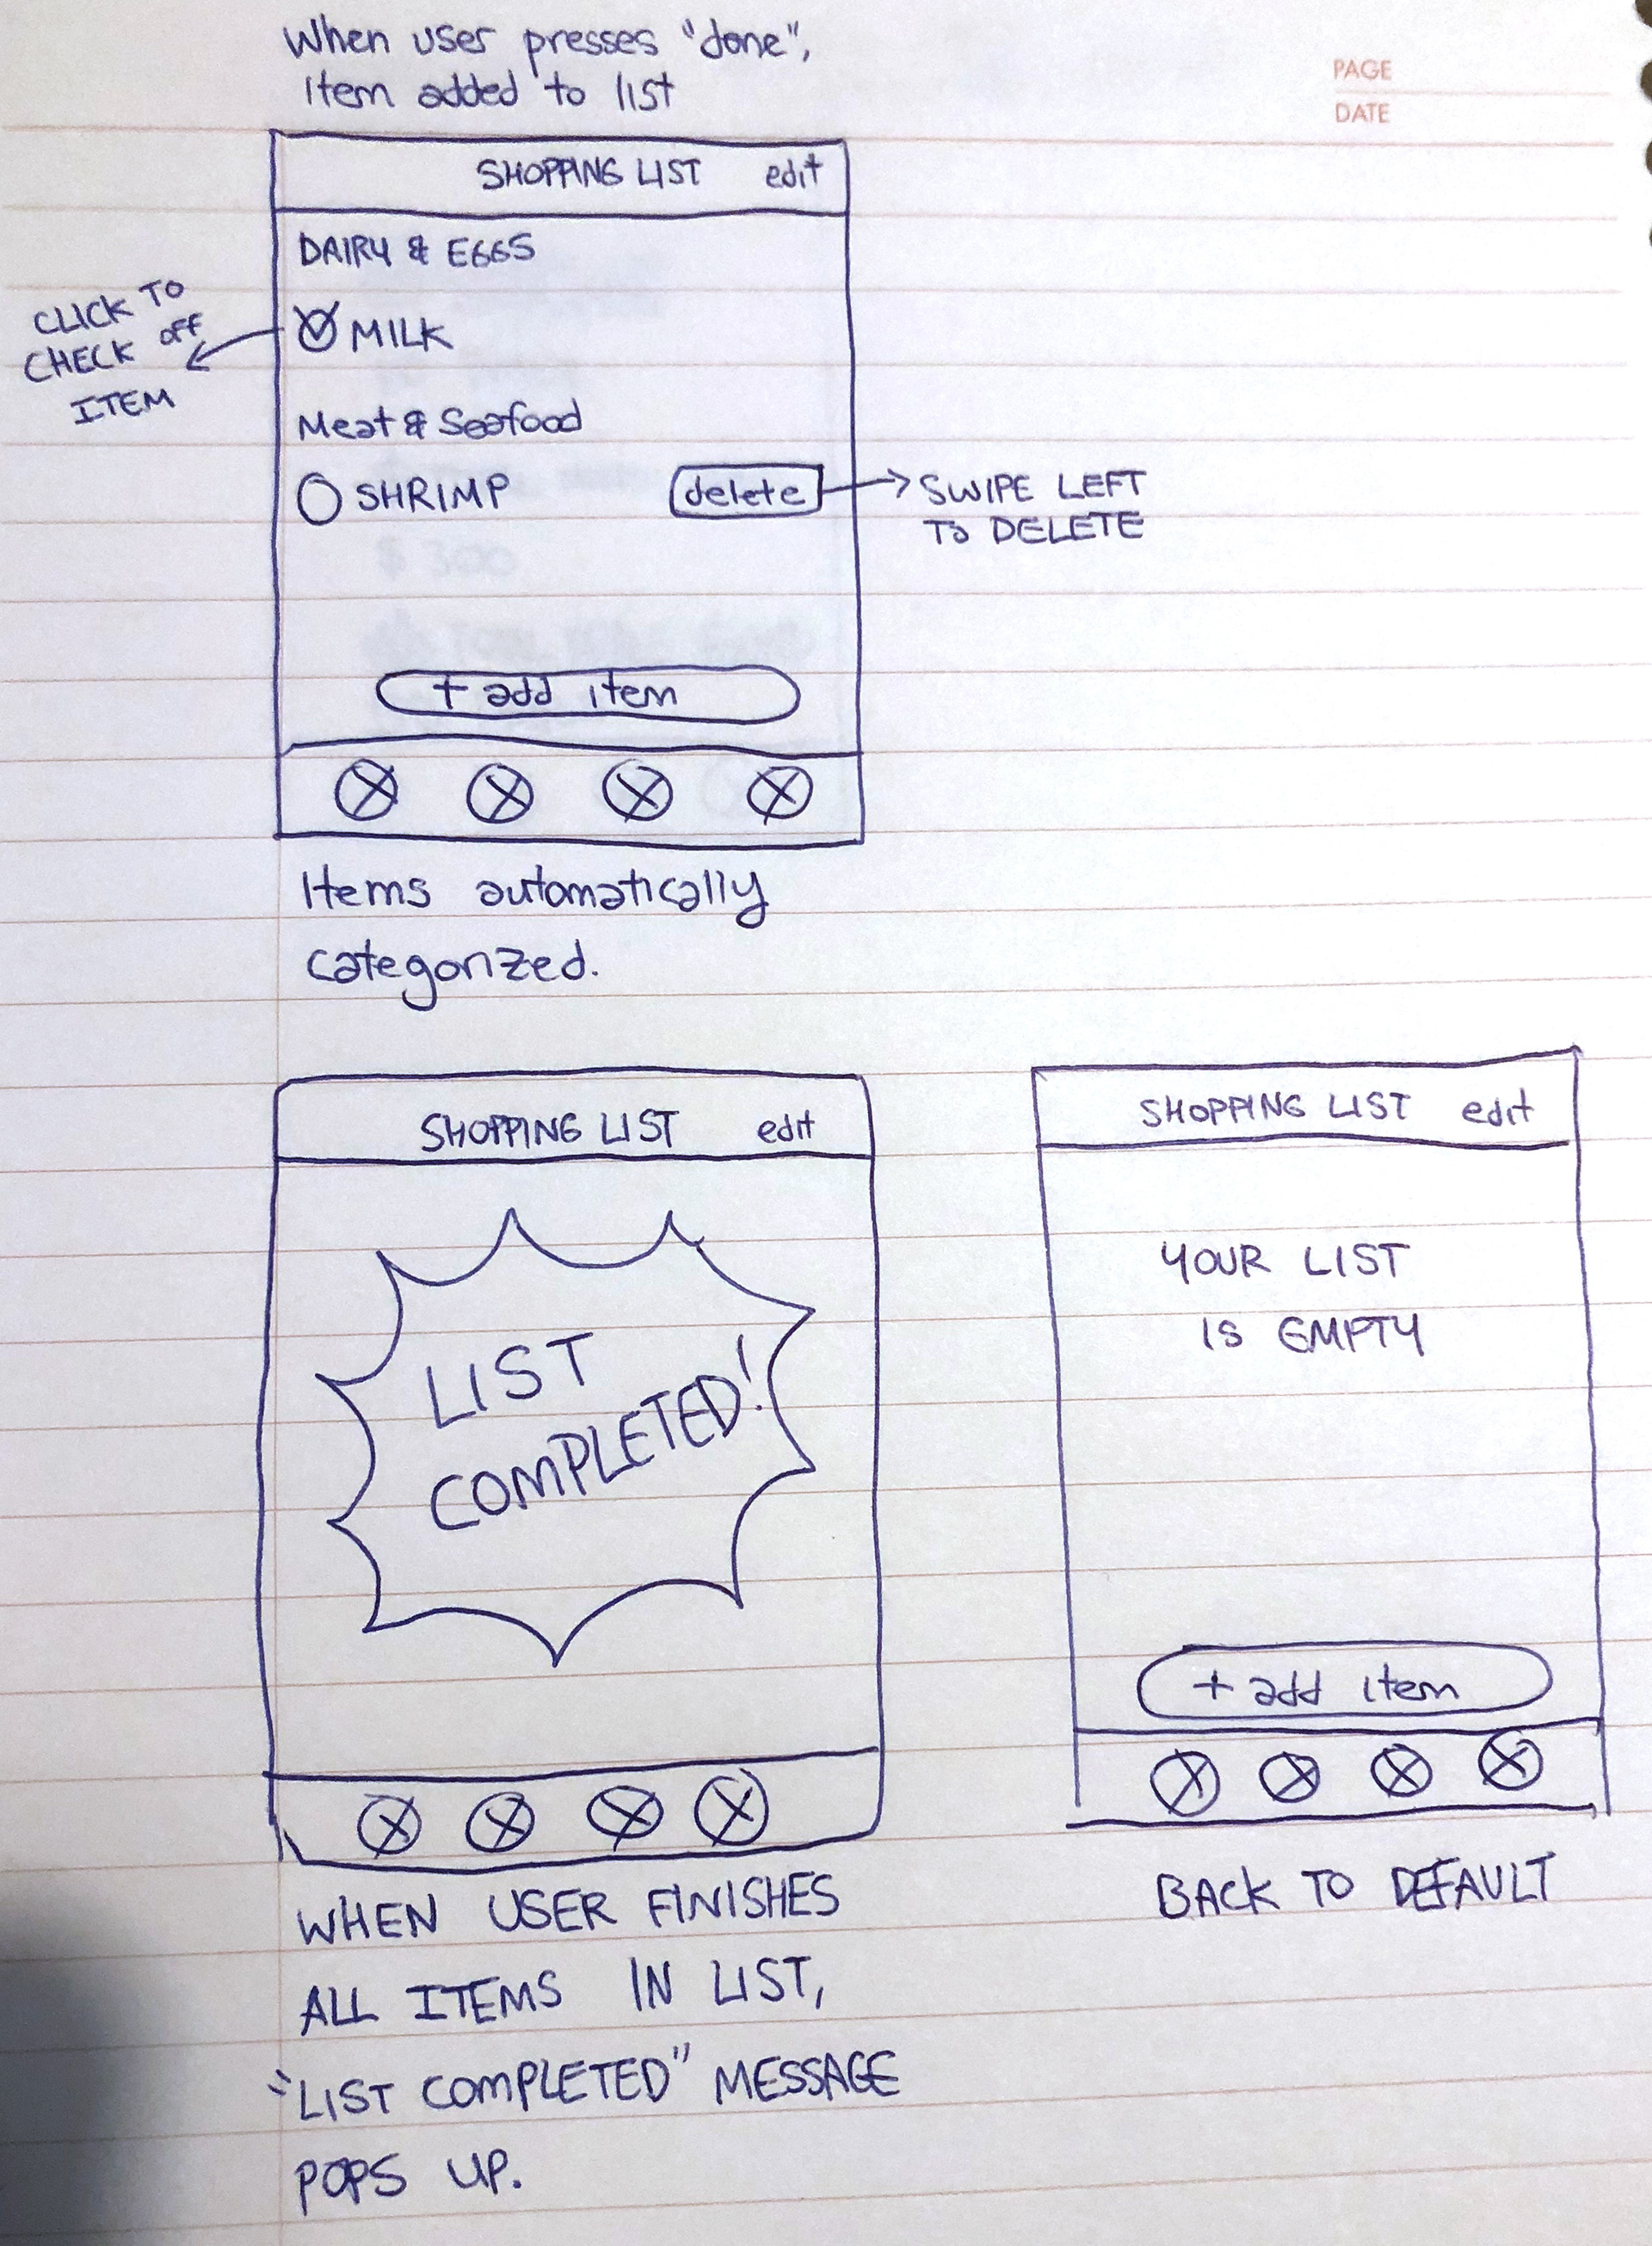 When user presses "done",
Item added to list
PAGE
DATE
SHOPPING LIST edit
DAIRY & EGGS
CLICK TO
CHECK OFF
ITEM
MILK
Meat & Seafood
SHRIMP delete
SWIPE LEFT
TO DELETE
+ add item
Items automatically
categorized.
SHOPPING LIST edit
LIST
COMPLETED!
WHEN USER FINISHES
ALL ITEMS IN LIST,
"LIST COMPLETED" MESSAGE
POPS UP.
SHOPPING LIST edit
YOUR LIST
IS EMPTY
+ add item
BACK TO DEFAULT